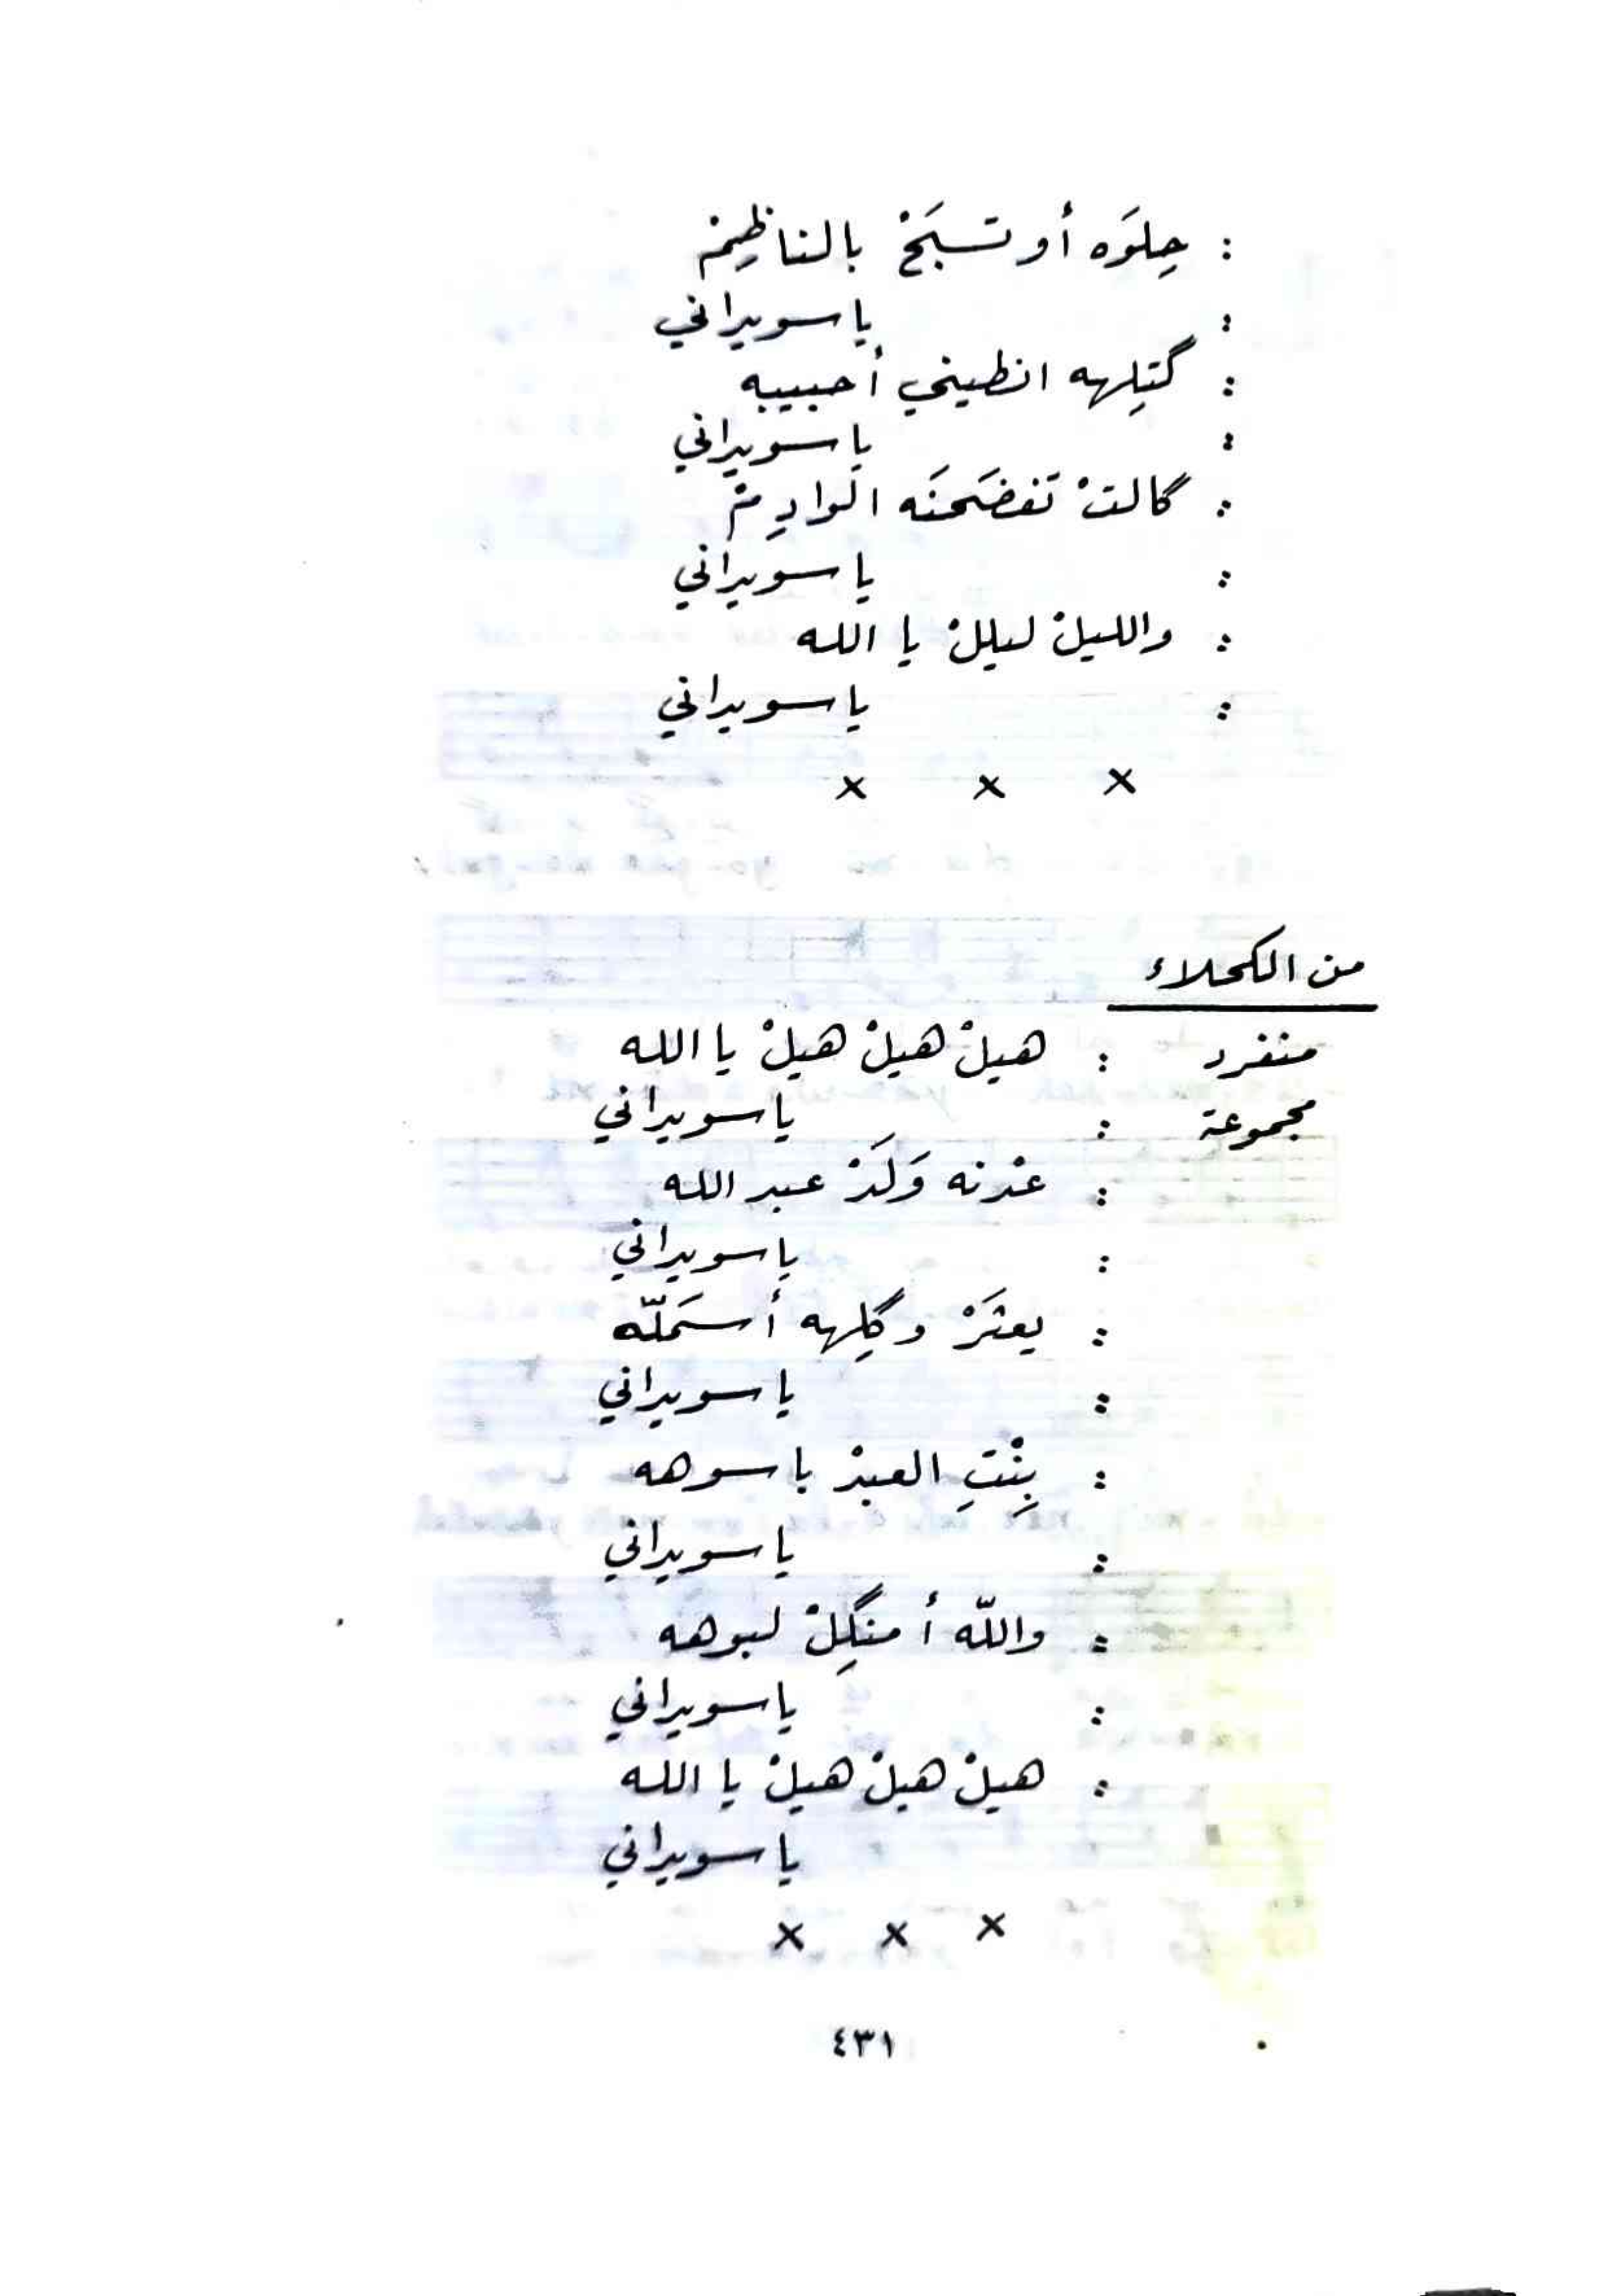 : حِلوَه أو تسبَحْ بالناظِمْ
: ياسويراني
: گتِلهه انطيني أحبيبه
: ياسويراني
: گالتْ تفضَحنَه الوادِمْ
: ياسويراني
: والليلْ ليللْ يا الله
: ياسويراني
× × ×
من الكحلاء
منفرد : هيلْ هيلْ هيلْ يا الله
مجموعة : ياسويراني
: عْدنه وَلَدْ عبد الله
: ياسويراني
: يعثَرْ وگِلهه أسَملّه
: ياسويراني
: بِنْتِ العبدْ باسوهه
: ياسويراني
: واللّه أمنگِلْ لبوهه
: ياسويراني
: هيلْ هيلْ هيلْ يا الله
ياسويراني
× × ×
٤٣١